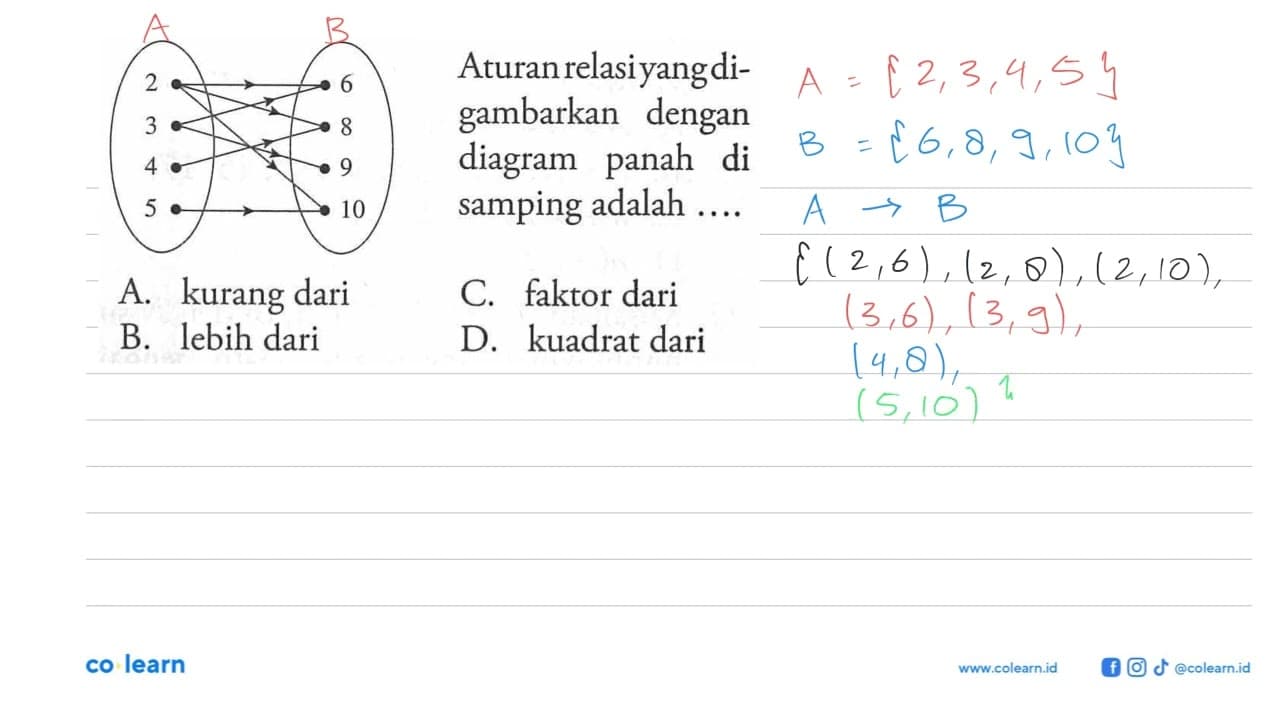 A B
2 6
3 8
4 9
5 10
Aturan relasi yang di-
gambarkan dengan
diagram panah di
samping adalah ....
A. kurang dari
B. lebih dari
C. faktor dari
D. kuadrat dari
A = {2, 3, 4, 5}
B = {6, 8, 9, 10}
A → B
{(2,6), (2,8), (2,10),
(3,6), (3,9),
(4,8),
(5,10)}
co learn
www.colearn.id
@colearn.id